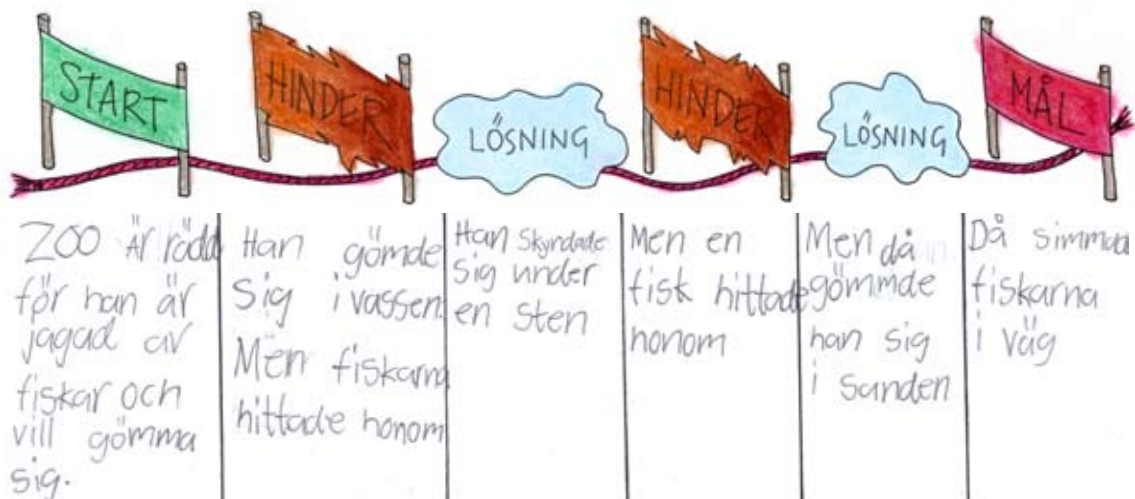 START
HINDER
LÖSNING
HINDER
LÖSNING
MÅL
ZOO Är rädd
för han är
jagad av
fiskar och
vill gömma
sig.
Han gömde
Sig i vassen.
Men fiskarna
hittade honom
Han skyndade
sig under
en sten
Men en
fisk hittade
honom
Men då
gömmde
han sig
i sanden
Då simmade
fiskarna
i väg